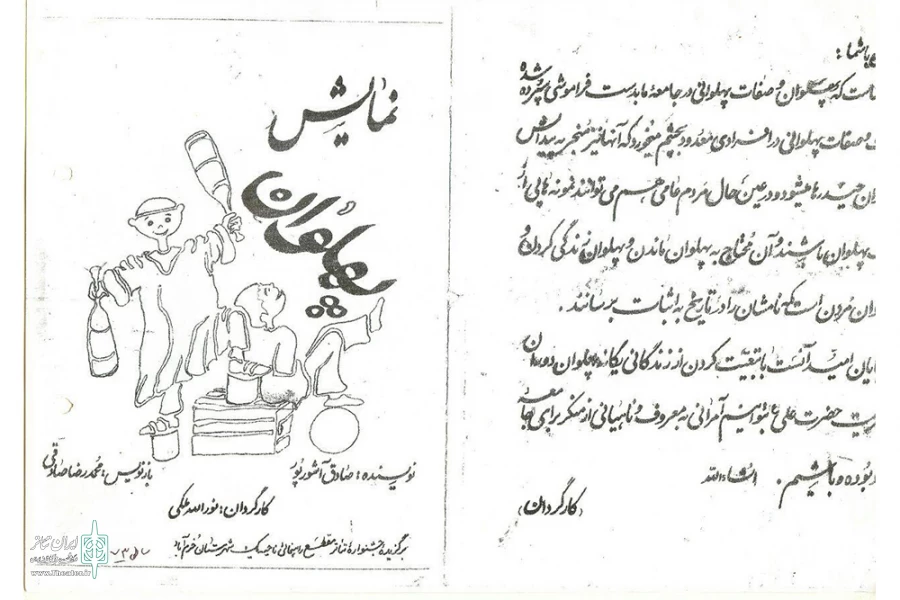 نمایش
پهلوان
نویسنده: صادق آشورپور
بازنویس: محمدرضا صادقی
کارگردان: نورالله ملکی
برگزیده جشنواره تئاتر مقطع راهنمایی ناحیه یک شهرستان خرم آباد
ایران تئاتر
www.Theater.ir
باشما:
است که پهلوان و صفات پهلوانی در جامعه ما بدست فراموشی سپرده شده
و صفات پهلوانی در افرادی معدود بچشم میخورد که آنها نیز منجر به پیدایش
حیدرها میشود و در عین حال مردم عامی هم می توانند نمونه هایی از
پهلوان باشند و آن محتاج به پهلوان ماندن و پهلوان زندگی کردن و
مردن است که نامشان را در تاریخ به اثبات برسانند.
امید آنست با تبعیت کردن از زندگانی یگانه پهلوان دوران
حضرت علی ع بتوانیم آمرانی به معروف و ناهیانی از منکر برای جامعه
بوده و باشیم. انشاءالله
(کارگردان)